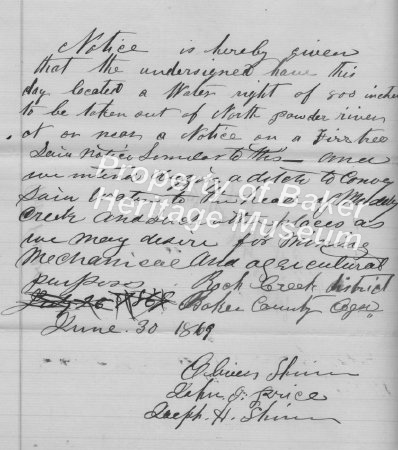 Notice is hereby given
that the undersigned have this
day located a Water right of 800 inches
to be taken out of North powder river
at or near a Notice on a Firr tree
Said Notice Similar to this – and
we intend a ditch to Convey
Said to the head of Muddy
Creek and places as
we may desire for
Mechanical And agricultural
purposes. Rock Creek district
Baker County Ogn
June 30 1869
Oliver Shinn
John J. Price
Joseph H. Shinn
Property of Baker
Heritage Museum